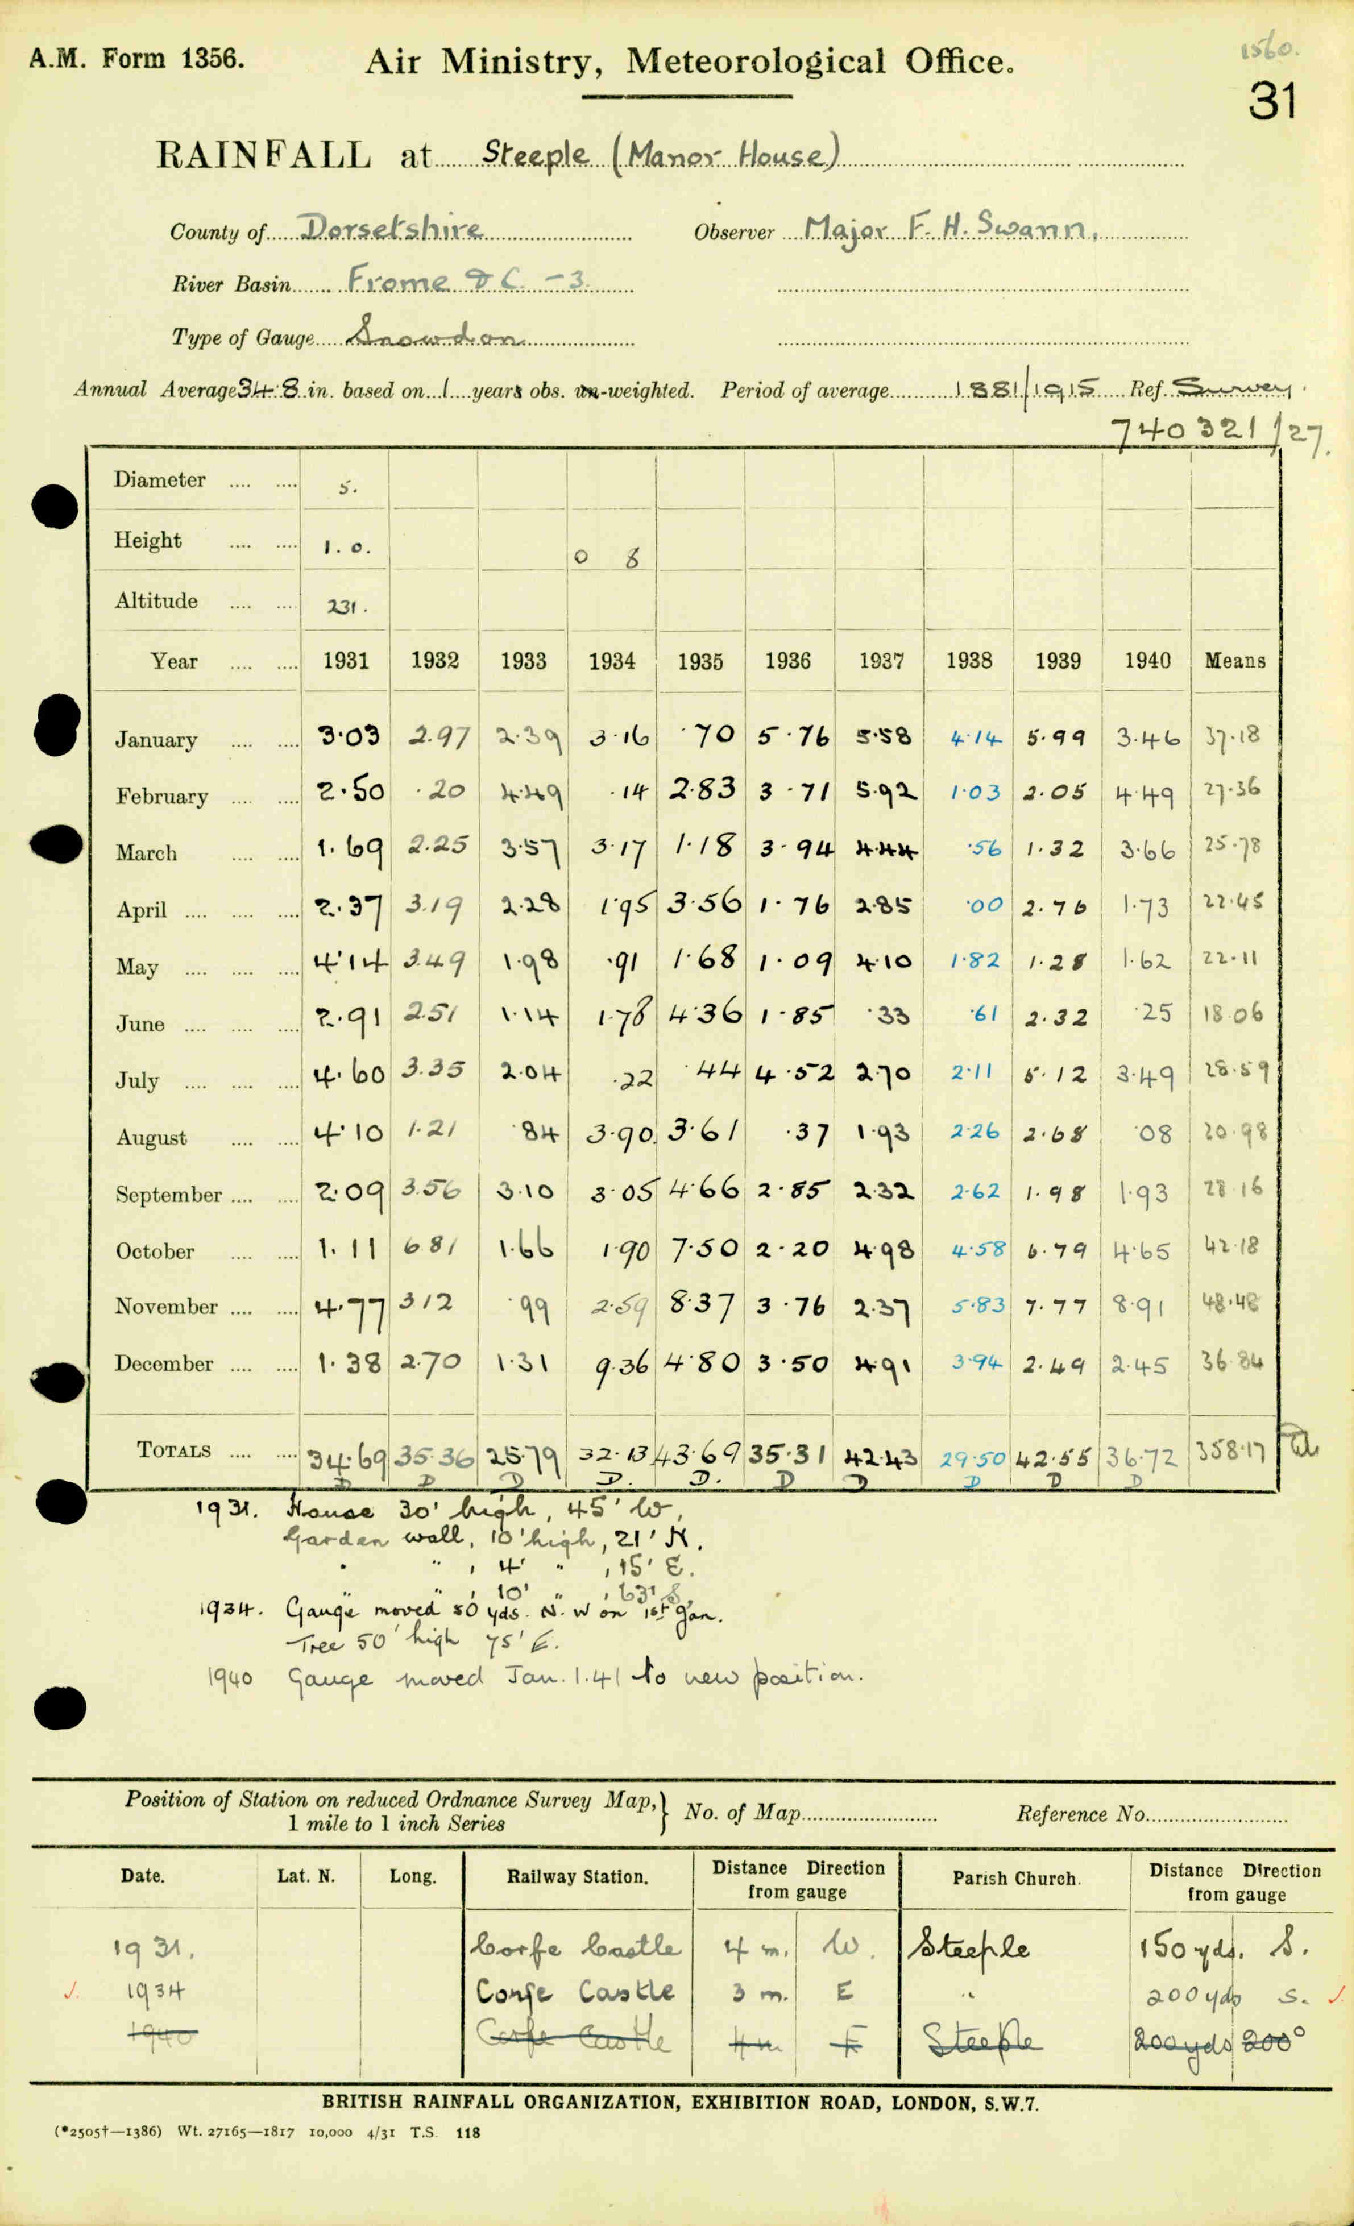 1560.
A.M. Form 1356. Air Ministry, Meteorological Office.
31
RAINFALL at Steeple (Manor House)
County of Dorsetshire Observer Major F. H. Swann.
River Basin Frome &C. -3.
Type of Gauge Snowdon
Annual Average 34.8 in. based on 1 years obs. un-weighted. Period of average 1881/1915 Ref. Survey.
740321/27.
Diameter .... .... 5.
Height .... .... 1.0. 0 8
Altitude .... .... 231.
Year .... .... 1931 1932 1933 1934 1935 1936 1937 1938 1939 1940 Means
January .... .... 3.03 2.97 2.39 3.16 .70 5.76 5.58 4.14 5.99 3.46 37.18
February .... .... 2.50 .20 4.49 .14 2.83 3.71 5.92 1.03 2.05 4.49 27.36
March .... .... 1.69 2.25 3.57 3.17 1.18 3.94 4.44 .56 1.32 3.66 25.78
April .... .... .... 2.37 3.19 2.28 1.95 3.56 1.76 2.85 .00 2.76 1.73 22.45
May .... .... .... 4.14 3.49 1.98 .91 1.68 1.09 4.10 1.82 1.28 1.62 22.11
June .... .... .... 2.91 2.51 1.14 1.78 4.36 1.85 .33 .61 2.32 .25 18.06
July .... .... .... 4.60 3.35 2.04 .22 .44 4.52 2.70 2.11 5.12 3.49 28.59
August .... .... 4.10 1.21 .84 3.90 3.61 .37 1.93 2.26 2.68 .08 20.98
September .... .... 2.09 3.56 3.10 3.05 4.66 2.85 2.32 2.62 1.98 1.93 28.16
October .... .... 1.11 6.81 1.66 1.90 7.50 2.20 4.98 4.58 6.79 4.65 42.18
November .... .... 4.77 3.12 .99 2.59 8.37 3.76 2.37 5.83 7.77 8.91 48.48
December .... .... 1.38 2.70 1.31 9.36 4.80 3.50 4.91 3.94 2.49 2.45 36.84
TOTALS .... .... 34.69 35.36 25.79 32.13 43.69 35.31 42.43 29.50 42.55 36.72 358.17
D D D D. D. D D D D D
1931. House 30' high, 45' W,
Garden wall, 10' high, 21' N.
" " , 4' " , 15' E.
" " , 10' " , 63' S.
1934. Gauge moved 50 yds. N.W on 1st Jan.
Tree 50' high 75' E.
1940 Gauge moved Jan. 1.41 to new position.
Position of Station on reduced Ordnance Survey Map,} No. of Map Reference No.
1 mile to 1 inch Series
Date. Lat. N. Long. Railway Station. Distance Direction from gauge Parish Church. Distance Direction from gauge
1931. Corfe Castle 4 m. W. Steeple 150 yds. S.
1934 Corfe Castle 3 m. E " 200 yds S.
1940 Corfe Castle 4m E Steeple 200 yds 200°
BRITISH RAINFALL ORGANIZATION, EXHIBITION ROAD, LONDON, S.W.7.
(*2505†—1386) Wt. 27165—1817 10,000 4/31 T.S. 118